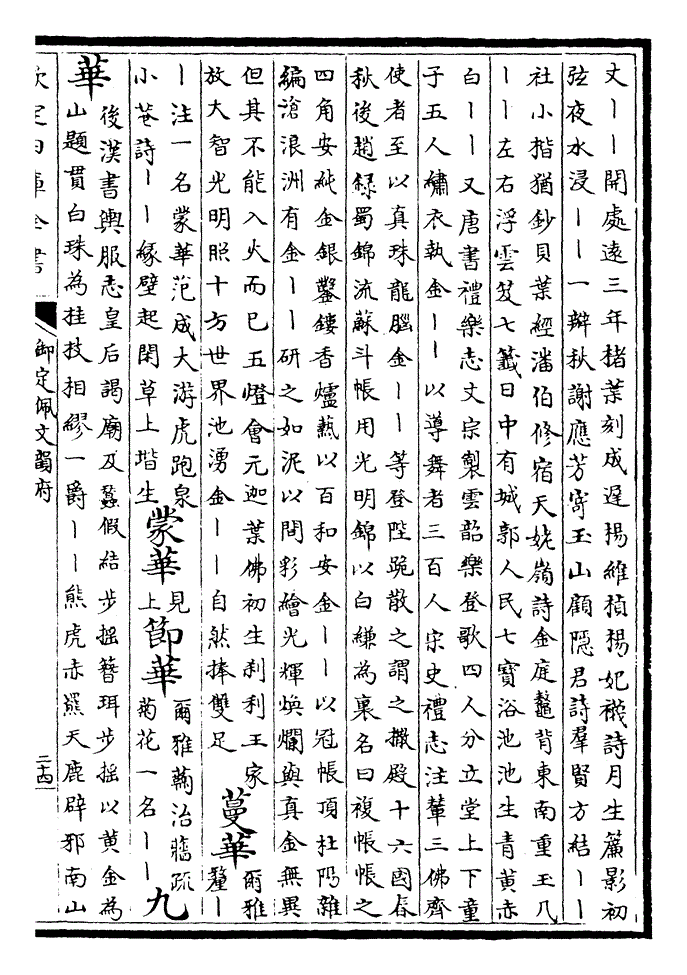 丈丨丨開處遠三年楮葉刻成遲楊維楨楊妃襪詩月生簾影初
弦夜水浸丨丨一瓣秋謝應芳寄玉山顧隱君詩羣賢方結丨丨
社小楷猶鈔貝葉經潘伯修宿天姥嶺詩金庭鼇背東南重玉几
丨丨左右浮雲笈七籖日中有城郭人民七寳浴池池生青黄赤
白丨丨又唐書禮樂志文宗製雲韶樂登歌四人分立堂上下童
子五人繡衣執金丨丨以導舞者三百人宋史禮志注輦三佛齊
使者至以真珠龍腦金丨丨等登陛跪散之謂之撒殿十六國春
秋後趙録蜀錦流蘇斗帳用光明錦以白縑為裏名曰複帳帳之
四角安純金銀鑿鏤香爐爇以百和安金丨丨以冠帳頂杜陽雜
編滄浪洲有金丨丨研之如泥以間彩繪光輝煥爛與真金無異
但其不能入火而已五燈會元迦葉佛初生刹利王家
放大智光明照十方世界池湧金丨丨自然捧雙足
蔓華
爾雅
釐丨
丨注一名蒙華范成大游虎跑泉
小菴詩丨丨緣壁起閑草上堦生
蒙華
見
上
節華
爾雅蘜治牆疏
菊花一名丨丨
九
華
後漢書輿服志皇后謁廟及蠶假結步搖簪珥步搖以黄金為
山題貫白珠為桂枝相繆一爵丨丨熊虎赤羆天鹿辟邪南山
欽定四庫全書
御定佩文韻府
二十四